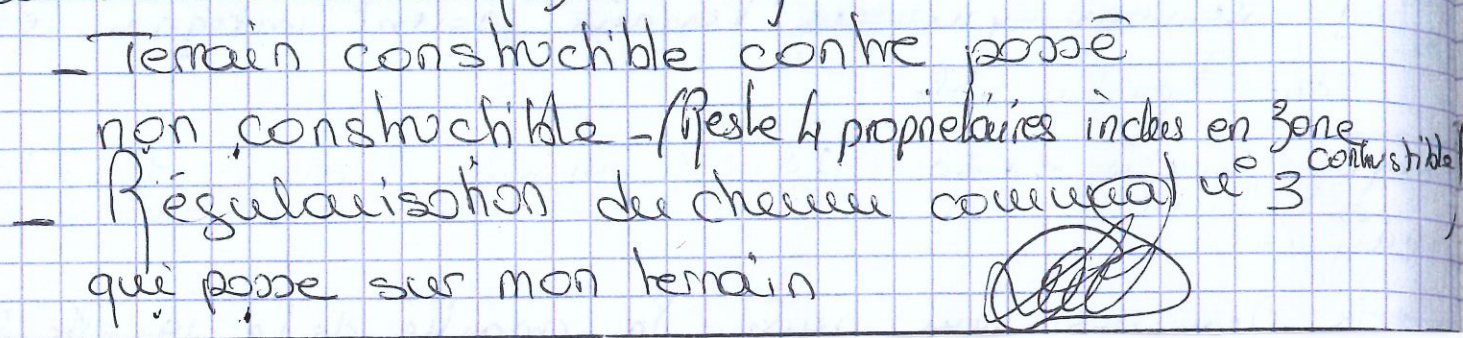 - Terrain constructible contre passé
non constructible - (Reste 4 propriétaires inclues en zone
contructible)
- Régularisation du chemin communal n° 3
qui passe sur mon terrain